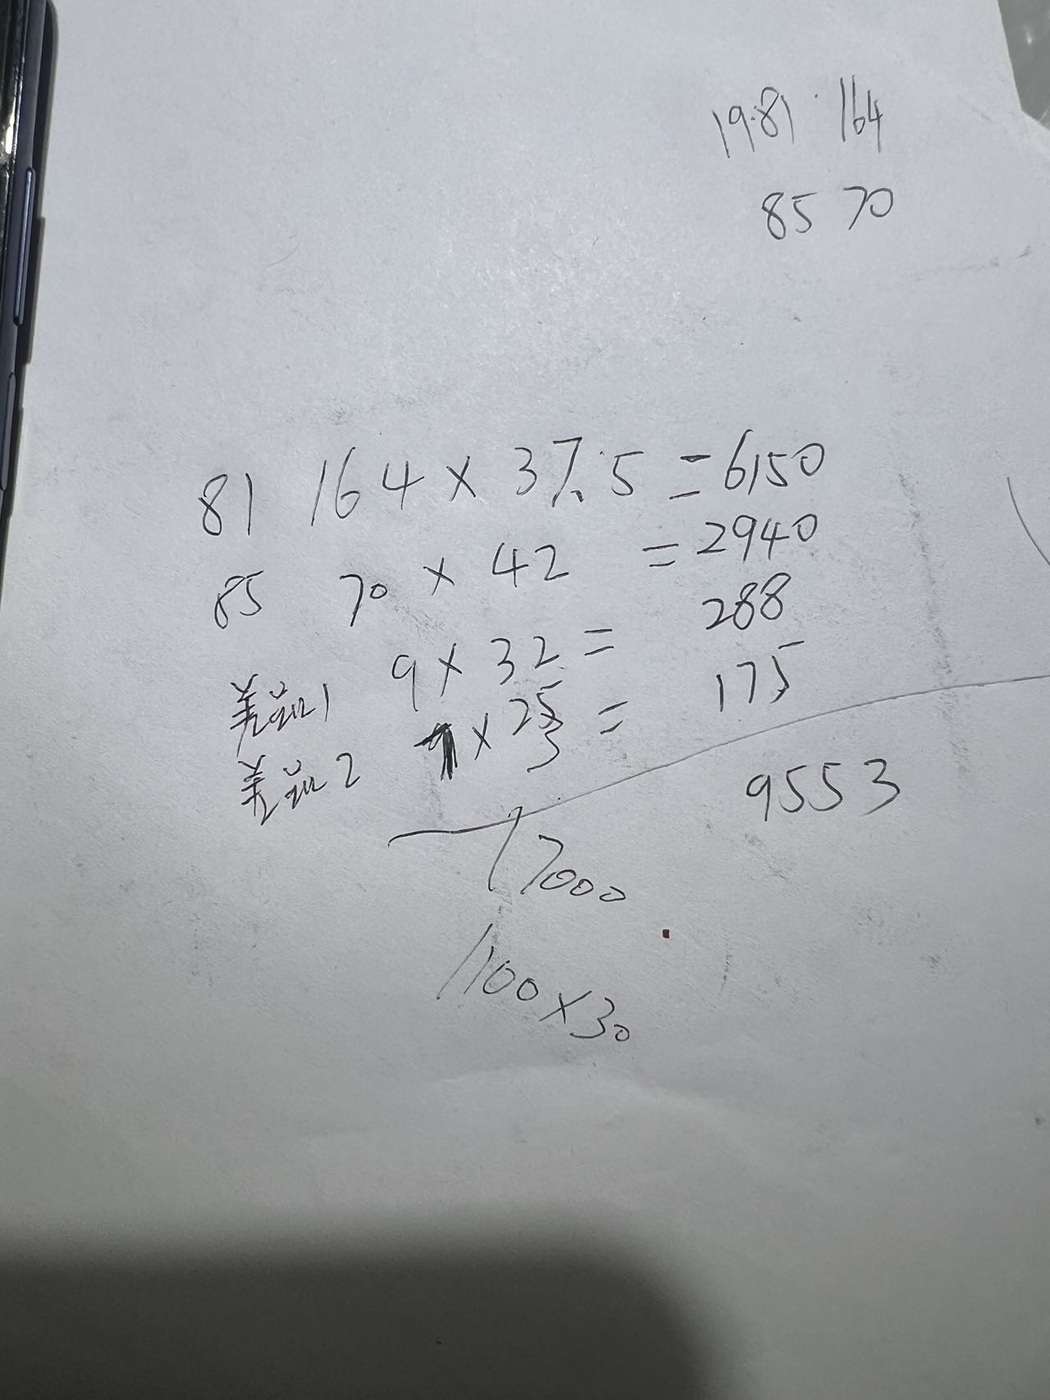 19.81 164
85 70
81 164 × 37.5 = 6150
85 70 × 42 = 2940
差品1 9 × 32 = 288
差品2 × 25 = 175
9553
17000
1100 × 30